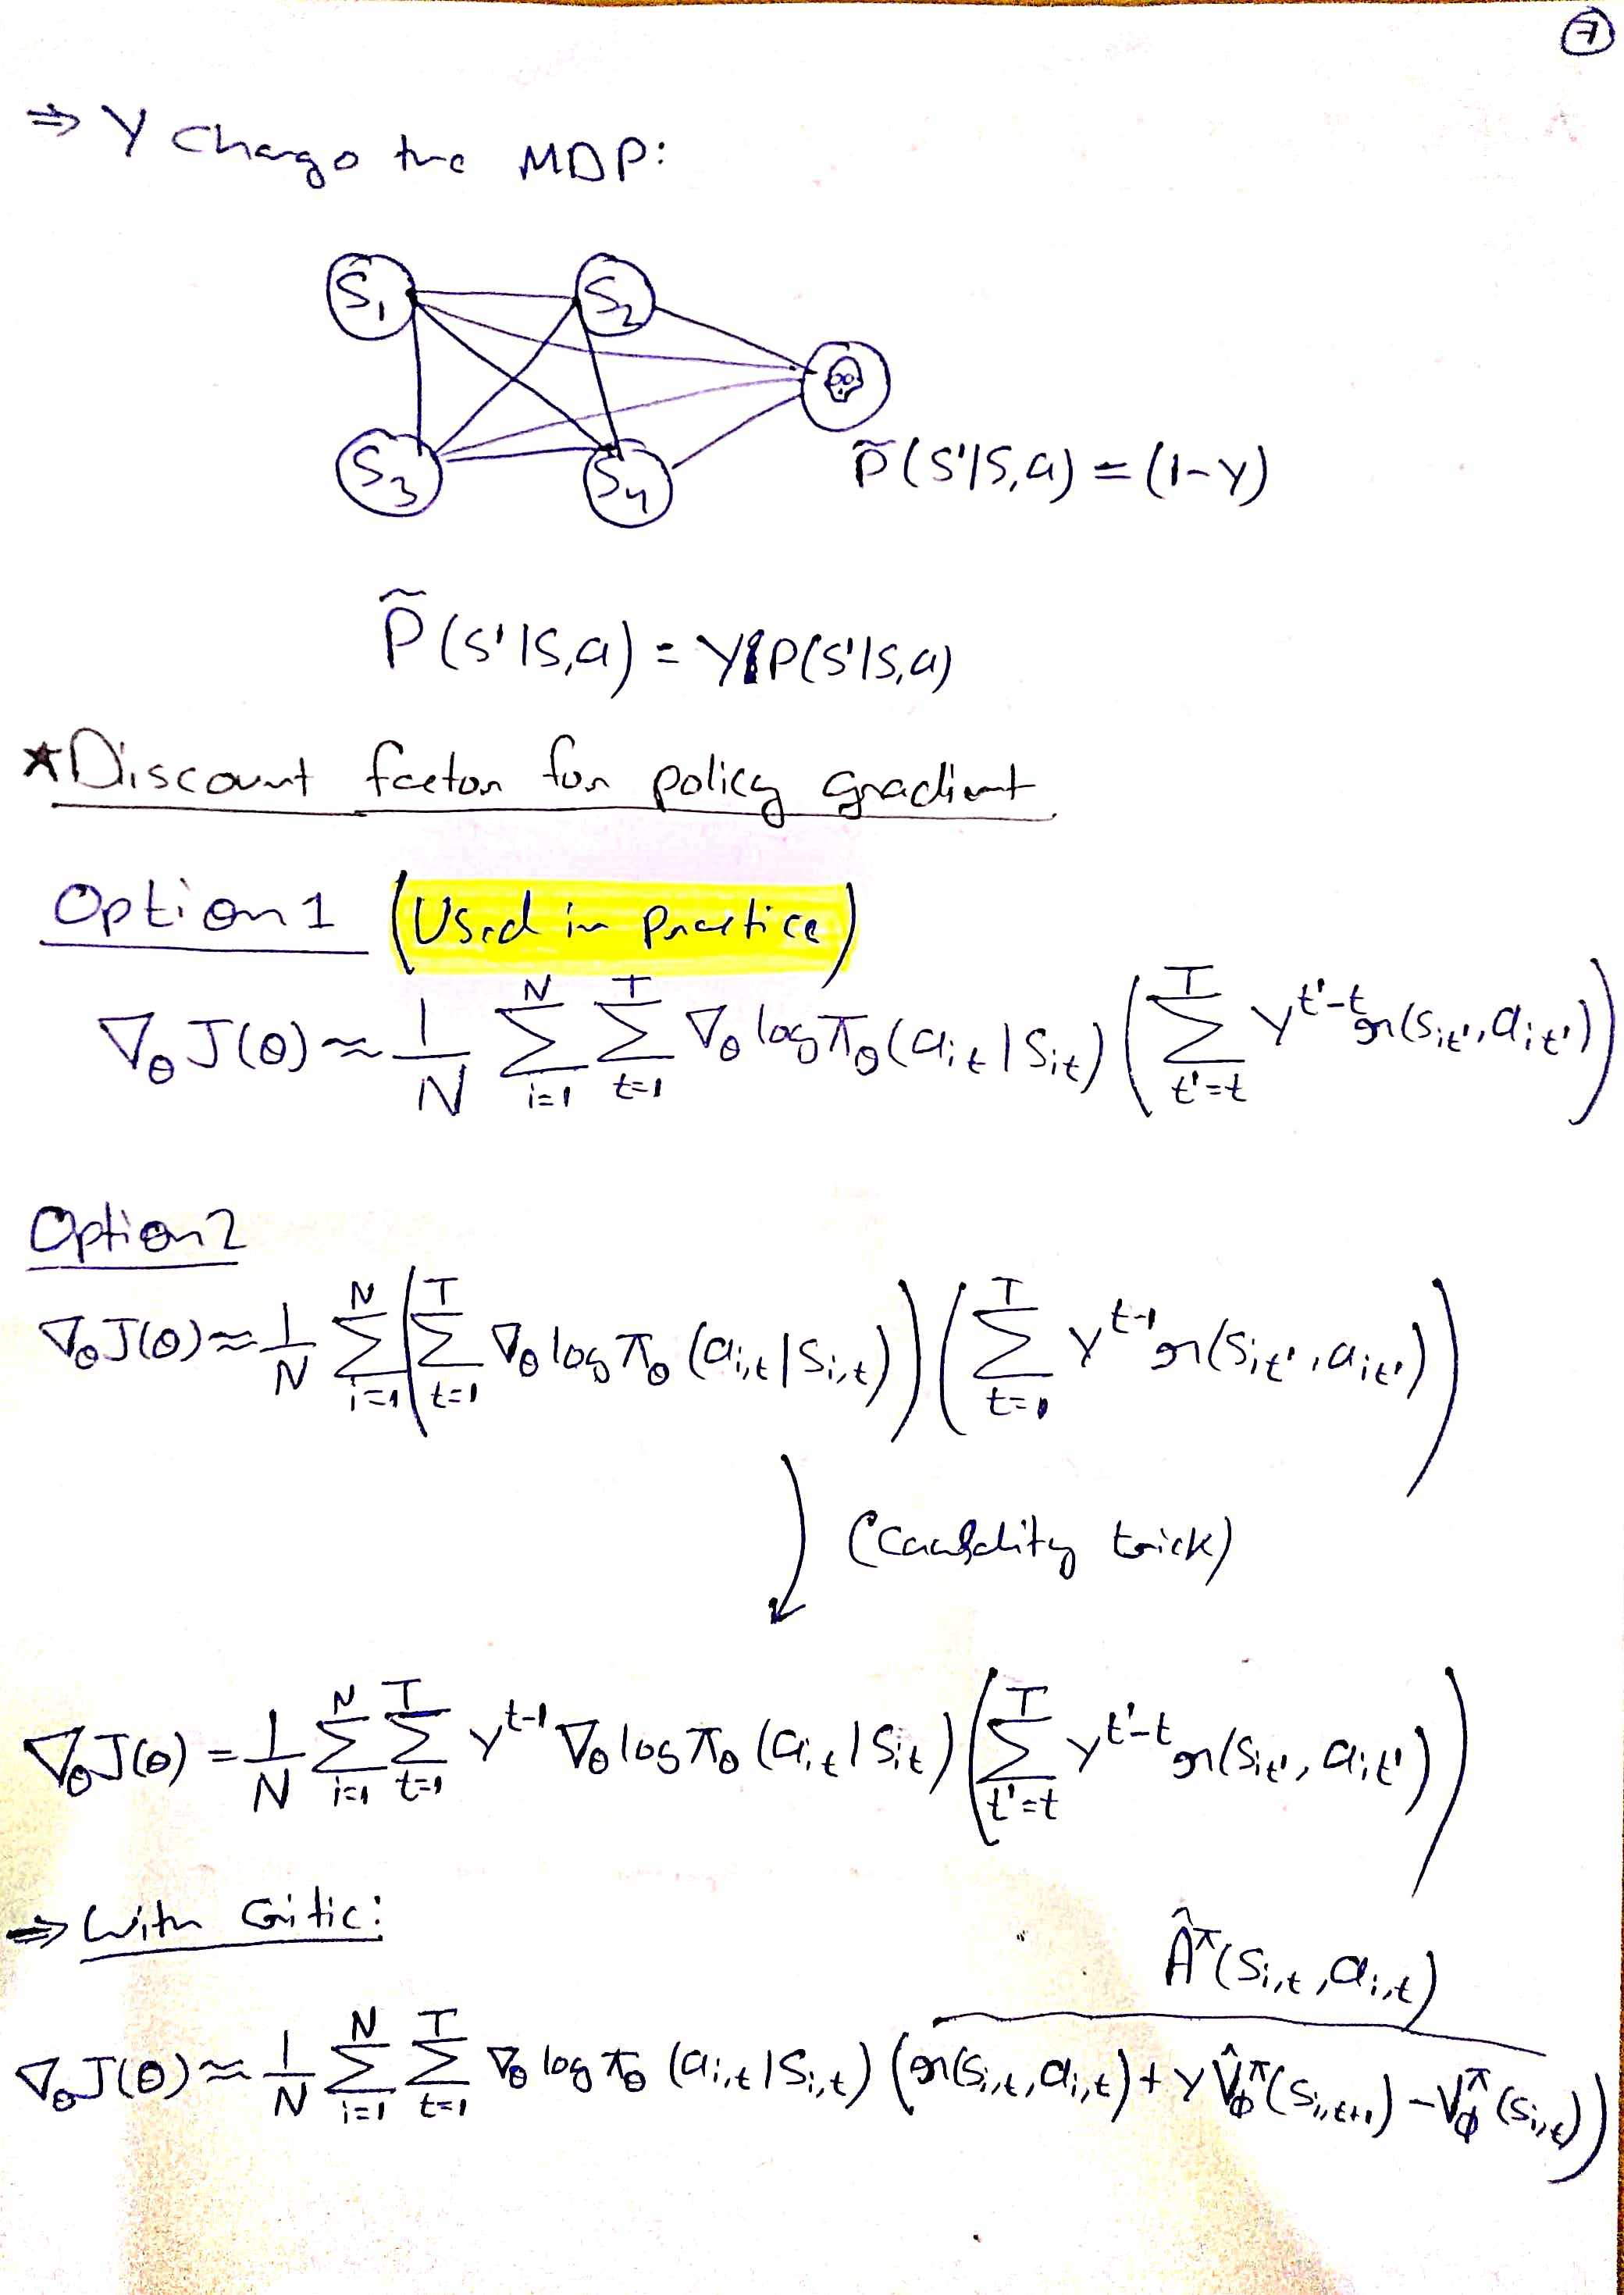 7
⇒ γ Change the MDP:
S₁ S₂
S₃ S₄
P̃(S'|S,a) = (1-γ)
P̃(S'|S,a) = γ P(S'|S,a)
★Discount factor for policy gradient
Option 1 (Used in Practice)
∇_θ J(θ) ≈ 1/N Σ_{i=1}^{N} Σ_{t=1}^{T} ∇_θ log π_θ(a_{it}|S_{it}) (Σ_{t'=t}^{T} γ^{t'-t} r(S_{it'}, a_{it'}))
Option 2
∇_θ J(θ) ≈ 1/N Σ_{i=1}^{N} (Σ_{t=1}^{T} ∇_θ log π_θ(a_{i,t}|S_{i,t})) (Σ_{t=1}^{T} γ^{t-1} r(S_{it'}, a_{it'}))
(Causality trick)
∇_θ J(θ) = 1/N Σ_{i=1}^{N} Σ_{t=1}^{T} γ^{t-1} ∇_θ log π_θ(a_{i,t}|S_{it}) (Σ_{t'=t}^{T} γ^{t'-t} r(S_{it'}, a_{it'}))
⇒ With Critic:
Â^π(S_{i,t}, a_{i,t})
∇_θ J(θ) ≈ 1/N Σ_{i=1}^{N} Σ_{t=1}^{T} ∇_θ log π_θ(a_{i,t}|S_{i,t}) (r(S_{i,t}, a_{i,t}) + γ V̂_ϕ^π(S_{i,t+1}) - V̂_ϕ^π(S_{i,t}))